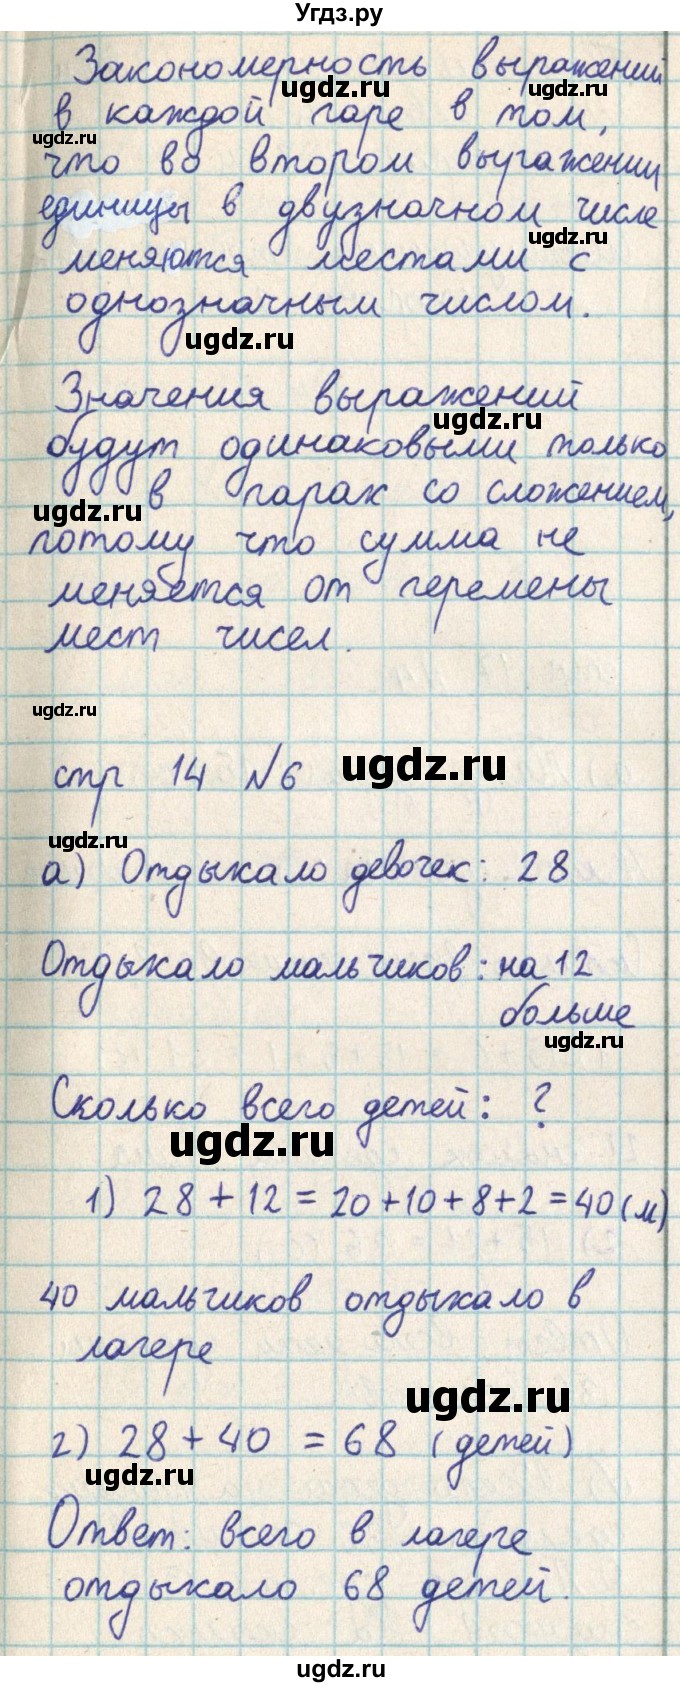 Угдз.ру
Закономерность выражений
ugdz.ru
ugdz.ru
в каждой паре в том,
ugdz.ru
что во втором выражении
единицы в двузначном числе
ugdz.ru
меняются местами с
однозначным числом.
ugdz.ru
Значения выражений
ugdz.ru
будут одинаковыми только
в парах со сложением,
ugdz.ru
потому что сумма не
меняется от перемены
мест чисел.
ugdz.ru
стр 14 №6
ugdz.ru
ugdz.ru
а) Отдыхало девочек: 28
Отдыхало мальчиков: на 12
больше
ugdz.ru
Сколько всего детей: ?
ugdz.ru
1) 28 + 12 = 20 + 10 + 8 + 2 = 40 (м)
40 мальчиков отдыхало в
лагере
ugdz.ru
2) 28 + 40 = 68 (детей)
ugdz.ru
Ответ: всего в лагере
отдыхало 68 детей.
ugdz.ru